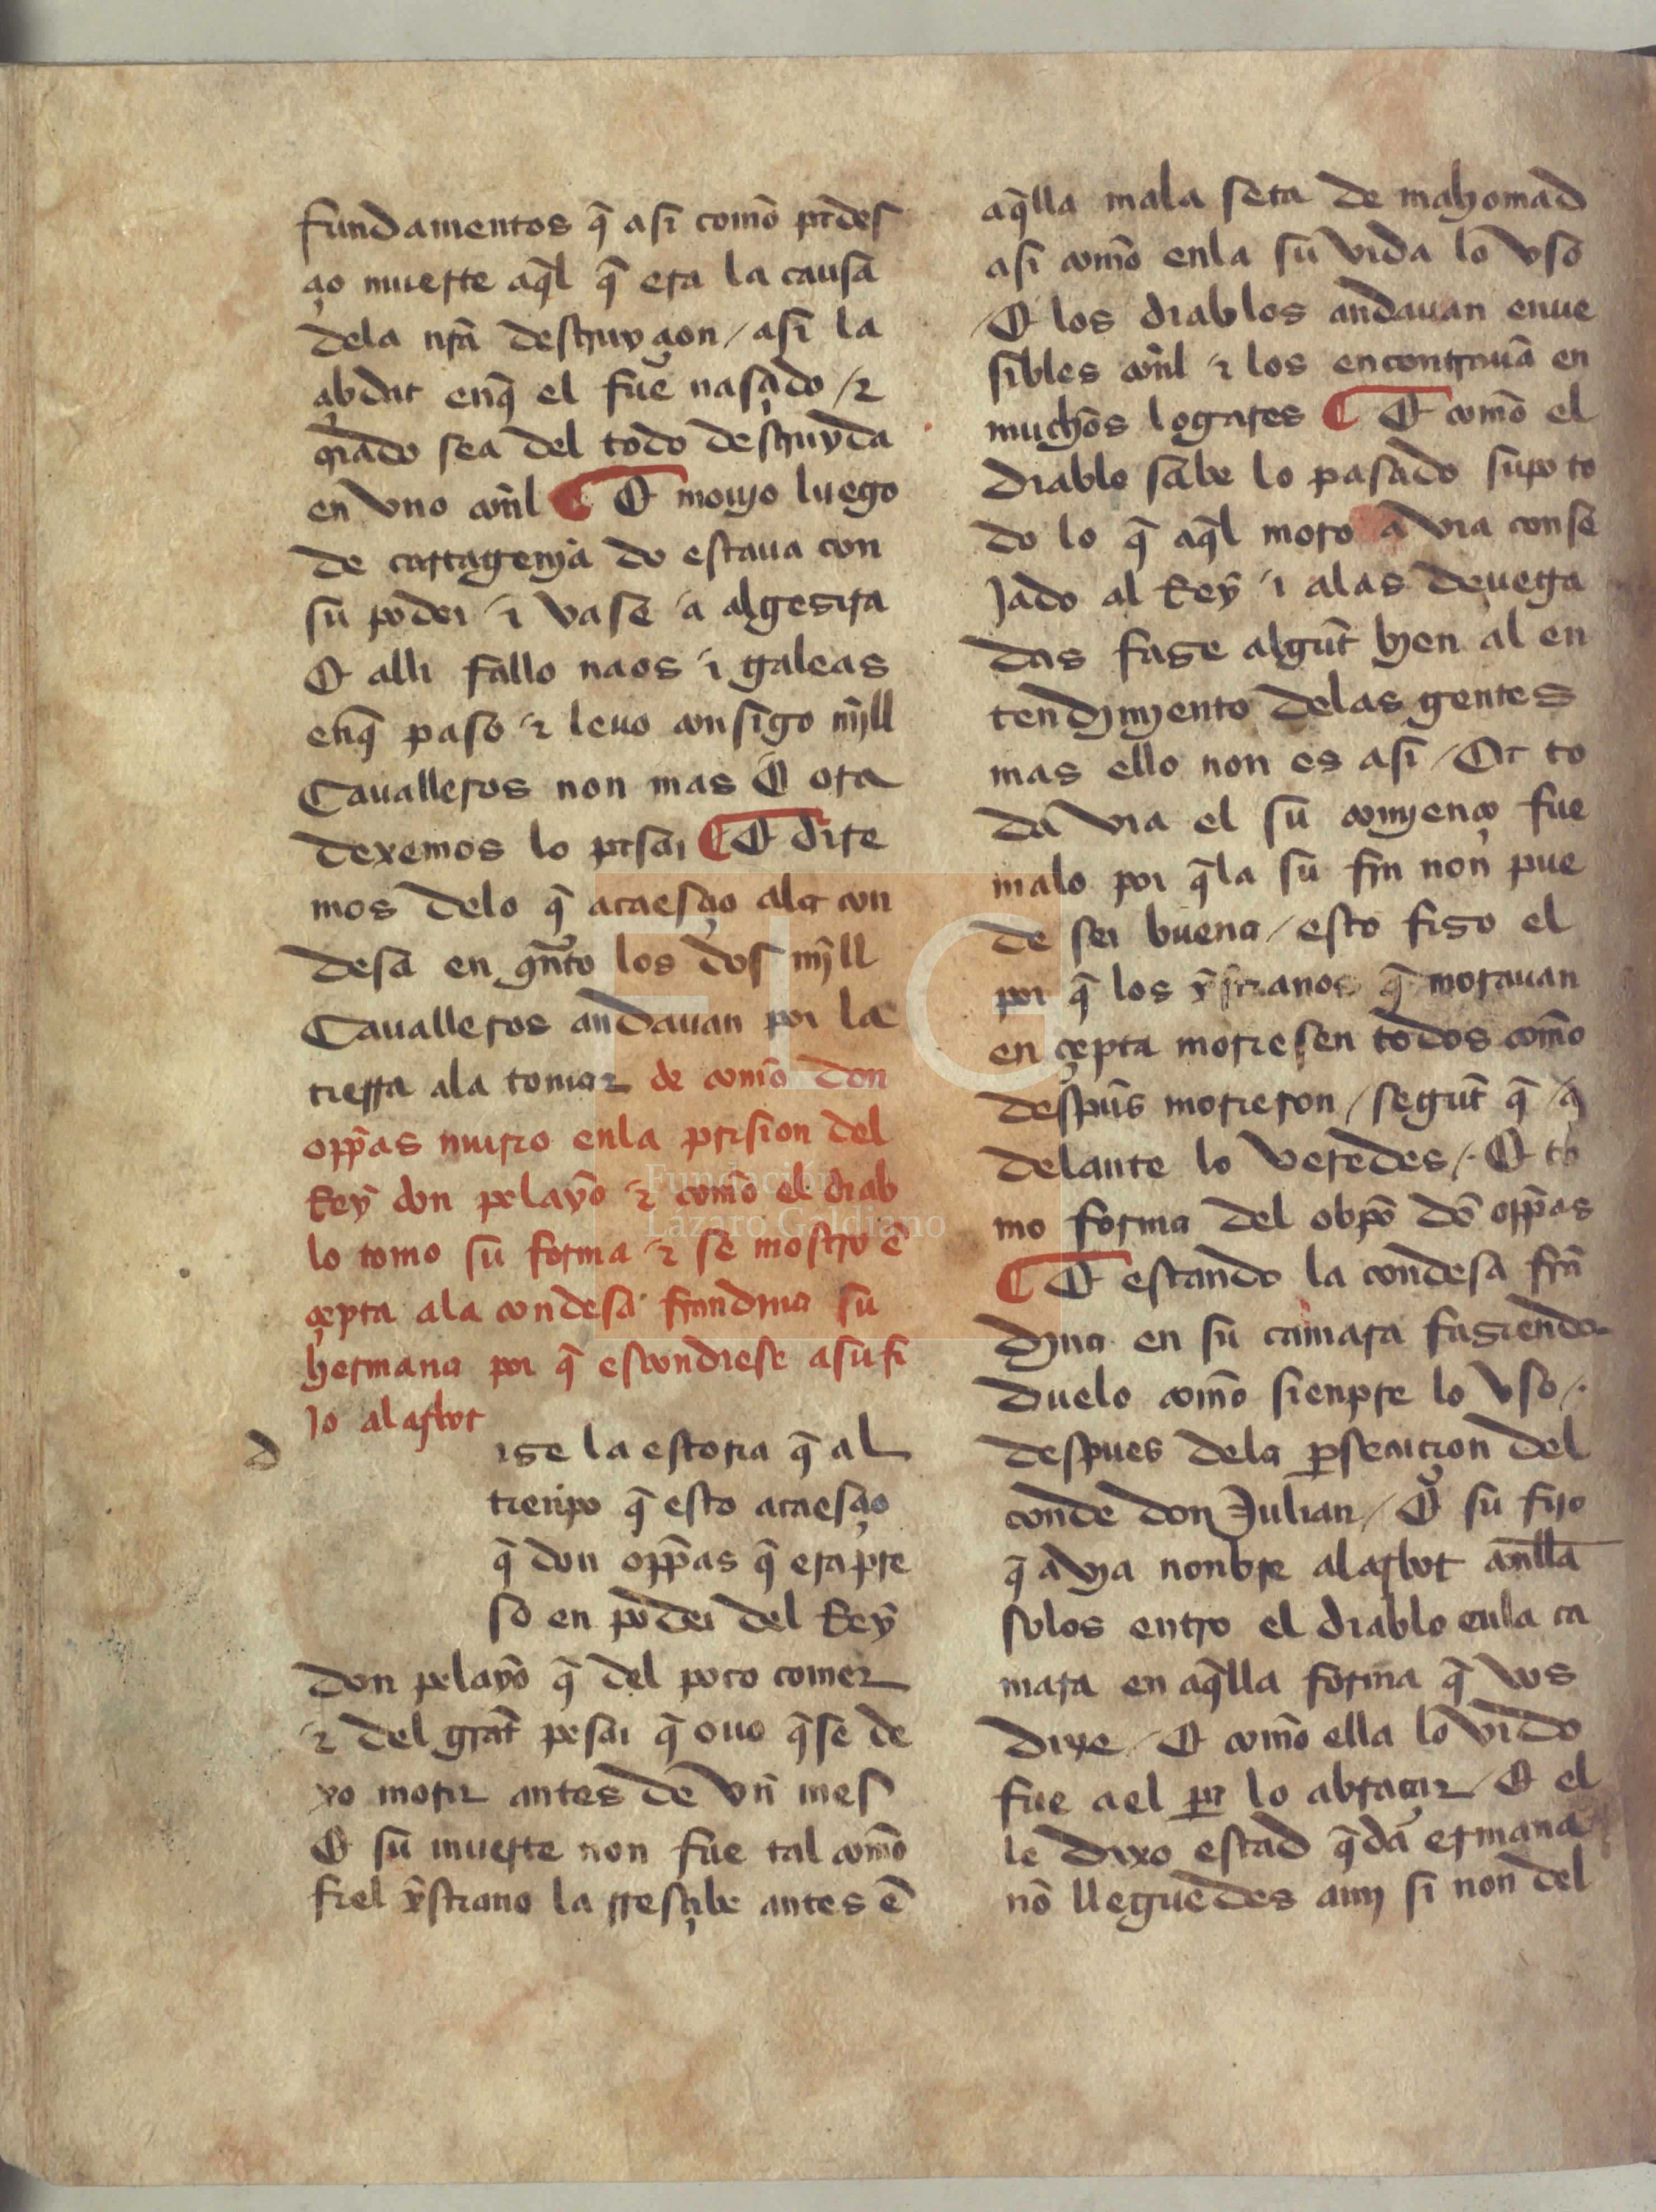 fundamentos q̃ asi comõ pͥdes
çio muerte aq̃l q̃ era la causa
dela nr̃a destruyçion / asi la
çibdat enq̃ el fue nasçido / ⁊
criado sea del todo destruyda
en vno con̄l ¶ E moujo luego
de cartagenja do estaua con
su poder ⁊ vase a algesira
E alli fallo naos ⁊ galeas
enq̃ paso ⁊ leuo consigo mj̃ll
Caualleros non mas E ora
dexemos lo pasar ¶ E dire
mos delo q̃ acaesçio ala con
desa en qñto los dos mj̃ll
Caualleros andauan por la
tierra ala tomar de comõ don
opp̃as murio enla prision del
Rey don pelayo ⁊ comõ el diab
lo tomo su forma ⁊ se mostro ẽ
çepta ala condesa frandina su
hermana por q̃ escondiese asu fi
jo alarbot
d ise la estoria q̃ al
tienpo q̃ esto acaesçio
q̃ don opp̃as q̃ era pre
so en poder del Rey
don pelayo q̃ del poco comer
⁊ del grãt pesar q̃ ouo q̃se de
xo morir antes de vñ mes
E su muerte non fue tal comõ
fiel xp̃istiano la rresçibe antes ẽ
aq̃lla mala seta de mahomad
asi comõ enla su vida lo vso
E los diablos andauan enue
sibles con̄l ⁊ los encontrauã en
muchos logares ¶ E comõ el
diablo sabe lo pasado supo to
do lo q̃ aq̃l moro auia conse
jado al Rey ⁊ alas deuega
das fase algũt bien al en
tendimjento delas gentes
mas ello non es asi / Ca to
da via el su comjenço fue
malo por q̃la su fin non pue
de ser buena / esto fiso el
por q̃ los xp̃istianos q̃ morauan
en çepta moriesen todos comõ
despũs morieron / segũt q̃ a
delante lo veredes / E to
mo forma del obp̃o dõ opp̃as
¶ E estando la condesa frñ
dina en su camara fasiendo
duelo comõ sienpre lo vso /
despues dela p̱secuçion del
conde don Julian / E su fijo
q̃ auja nonbre alarbot cõnlla
solos entro el diablo enla ca
mara en aq̃lla forma q̃ vos
dixe / E comõ ella lo vido
fue a el por lo abraçar / E el
le dixo estad q̃da ermana
nõ lleguedes amj si non del
FLG
Fundación
Lázaro Galdiano